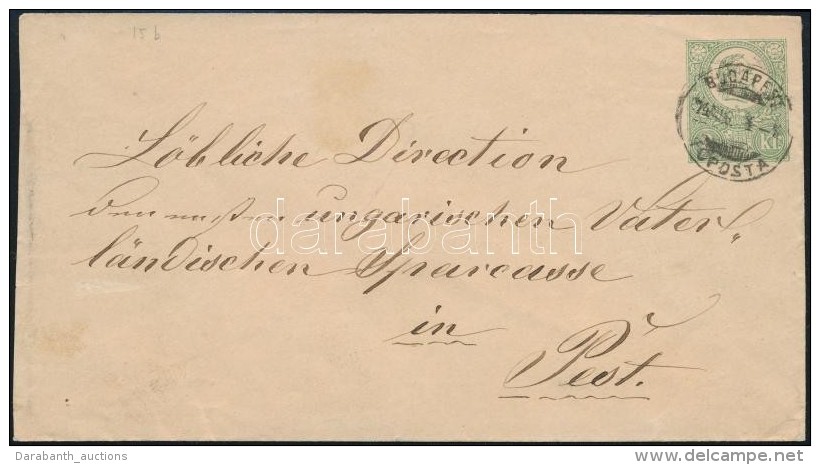 15 b
BUDAPEST
FŐPOSTA
Kr.
Löbliche Direction
der ersten ungarischen Vater„
ländischen Sparcasse
in
Pest.
darabanth
Darabanth_auctions
delcampe.net